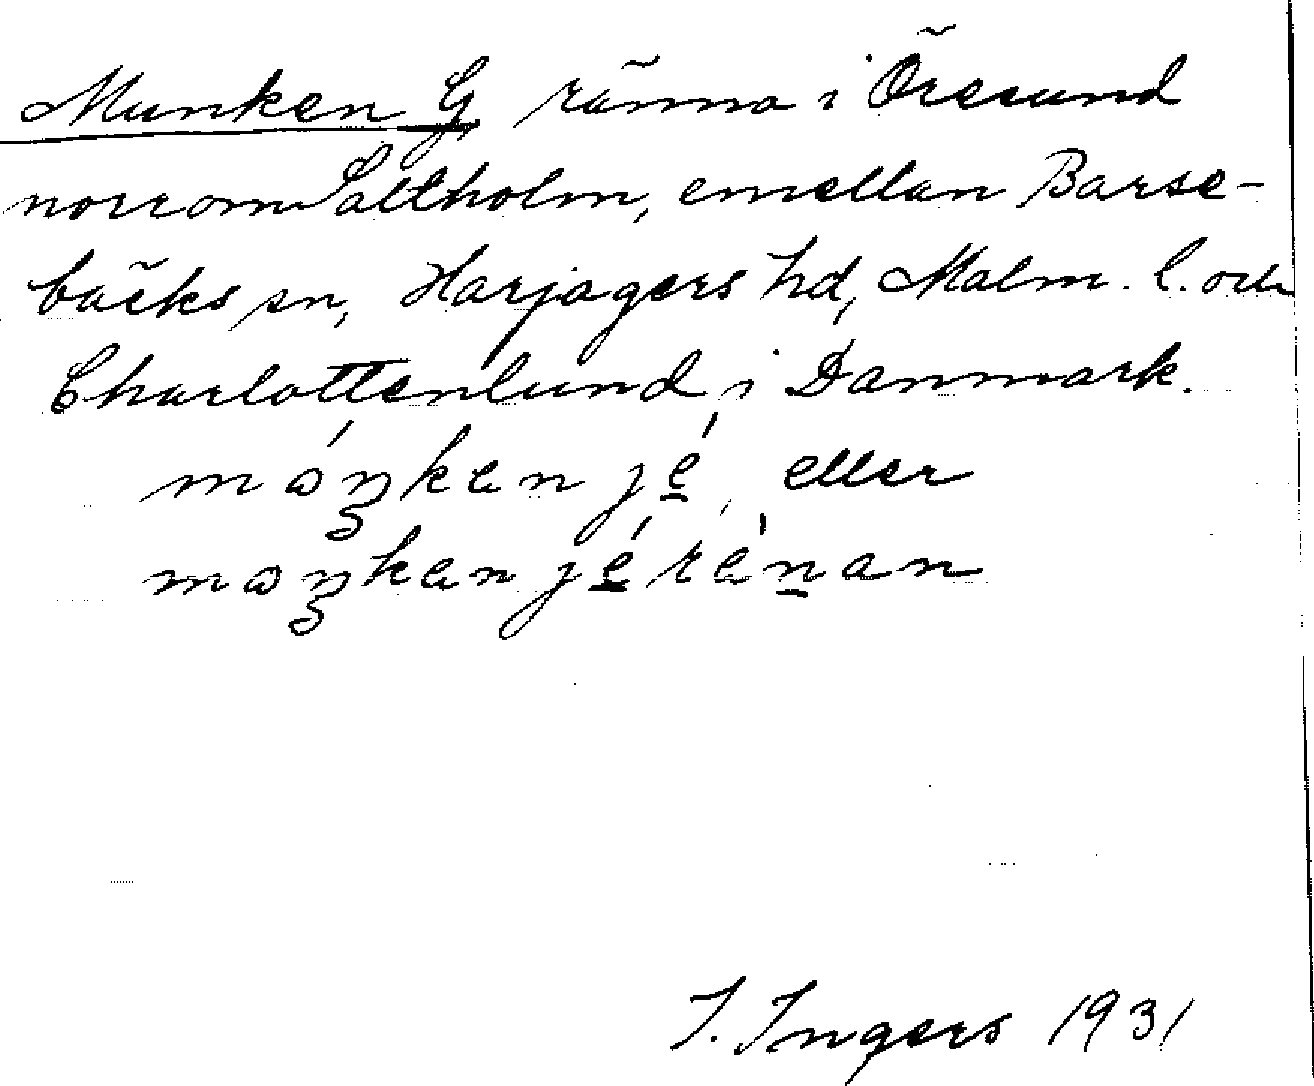 Munken G, ränna i Öresund
norr om Saltholm, emellan Barse-
bäcks sn, Harjagers hd, Malm. l. och
Charlottenlund i Danmark.
móŋken jé, eller
moŋken jé rènan
I. Ingers 1931